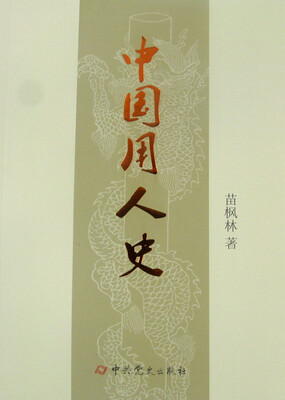 中国用人史
苗枫林 著
中共党史出版社